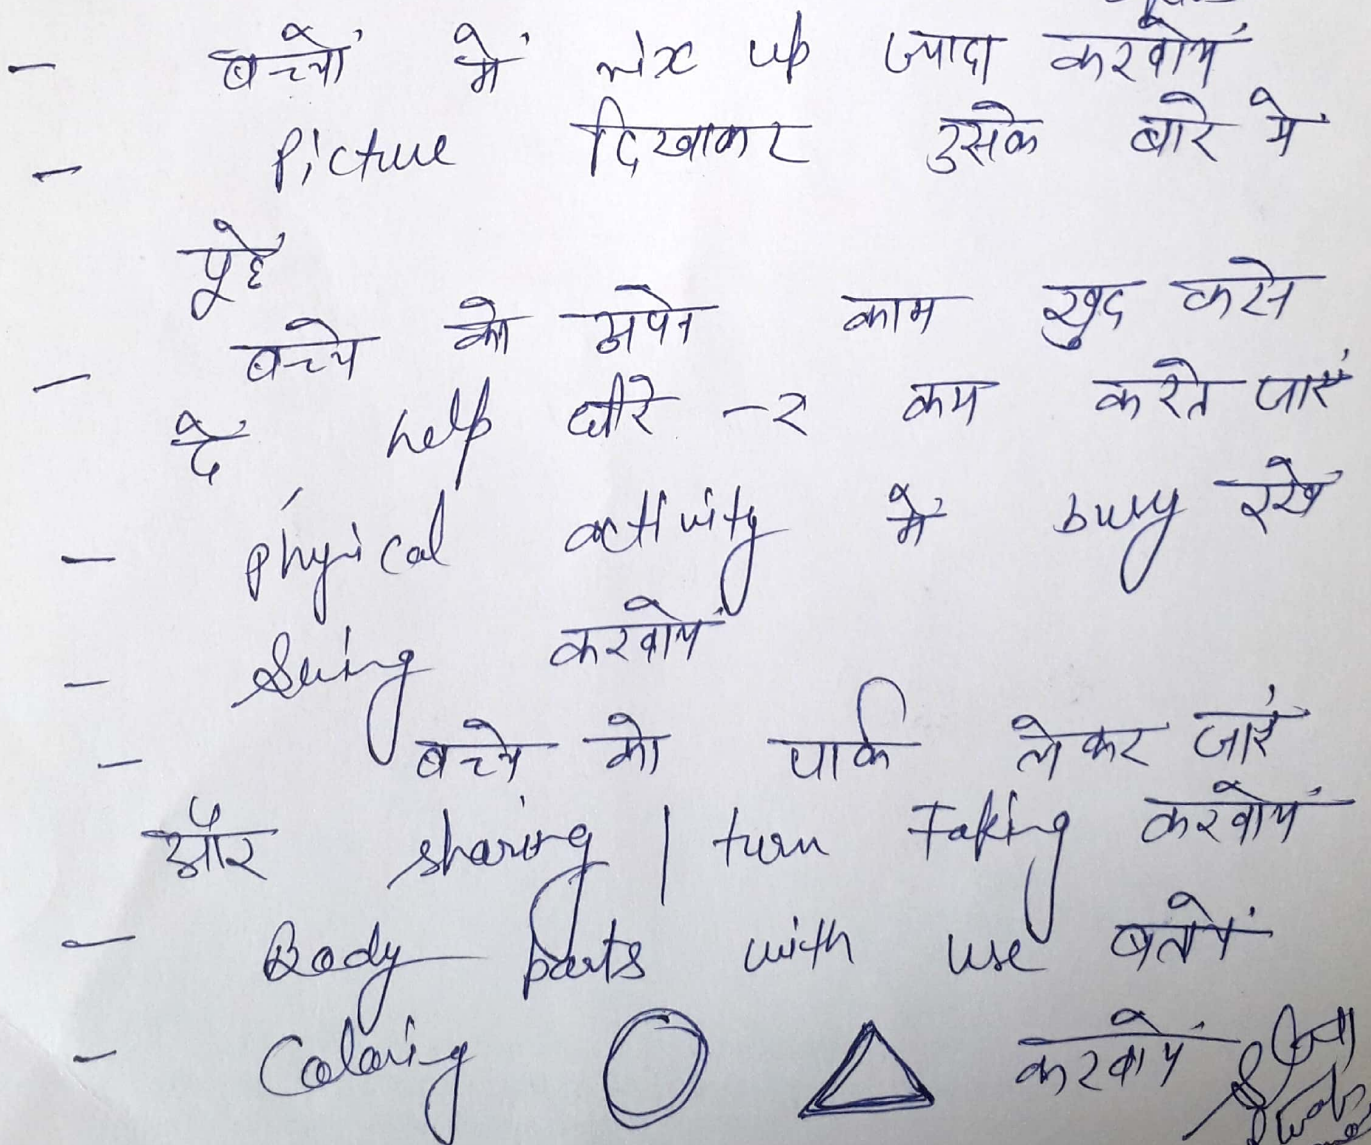 - बच्चों में mix up ज्यादा करवायें
- Picture दिखाकर उसके बारे में
पूछें
- बच्चे को अपने काम खुद करने
दें help धीरे -२ कम करते जाएं
- Physical activity में busy रखें
- Swing करवायें
- बच्चे को पार्क लेकर जाएं
और sharing / turn taking करवायें
- Body parts with use बतायें
- Coloring करवायें